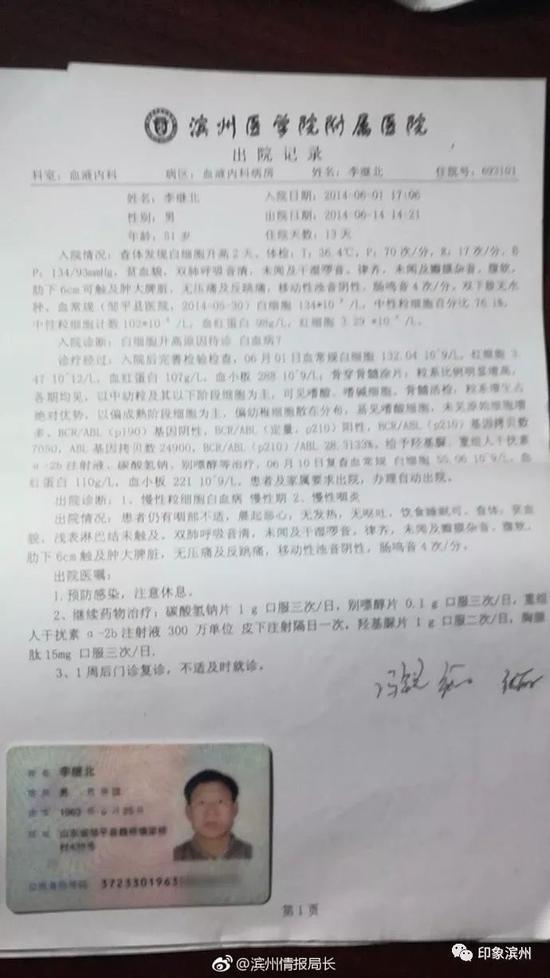 滨州医学院附属医院
出院记录
科室：血液内科 病区：血液内科病房 姓名：李继北 住院号：693101
姓名：李继北 入院日期：2014-06-01 17:06
性别：男 出院日期：2014-06-14 14:21
年龄：51岁 住院天数：13天
入院情况：查体发现白细胞升高2天。体检：T：36.4℃，P：70次/分，R：17次/分，B
P：134/93mmHg，贫血貌，双肺呼吸音清，未闻及干湿啰音，律齐，未闻及瓣膜杂音，腹软，
肋下6cm可触及肿大脾脏，无压痛及反跳痛，移动性浊音阴性，肠鸣音4次/分。双下肢无水
肿。血常规（邹平县医院，2014-05-30）白细胞 134*10⁹/L，中性粒细胞百分比
中性粒细胞计数 103*10⁹/L，血红蛋白 98g/L，红细胞 3.29
入院诊断：白细胞升高原因待诊 白血病？
诊疗经过：入院后完善检验检查，06月01日血常规白细胞 132.04 10^9/L，红细胞 3.
47 10^12/L，血红蛋白 107g/L，血小板 288 10^9/L；骨穿骨髓涂片：粒系比例明显增高，
各期均见，以中幼粒及其以下阶段细胞为主，可见嗜酸、嗜碱细胞。骨髓活检：粒系增生占
绝对优势，以偏成熟阶段细胞为主，偏幼稚细胞散在分布，易见嗜酸细胞，未见原始细胞增
多。BCR/ABL（p190）基因阴性，BCR/ABL（定量，p210）阳性，BCR/ABL（p210）基因拷贝数
7050，ABL基因拷贝数 24900，BCR/ABL（p210）/ABL 28.3133%。给予羟基脲、重组人干扰素
α-2b注射液、碳酸氢钠、别嘌醇等治疗，06月10日复查血常规 白细胞 55.06 10^9/L，血
红蛋白 110g/L，血小板 221 10^9/L。患者及家属要求出院，办理自动出院。
出院诊断：1、慢性粒细胞白血病 慢性期 2、慢性咽炎
出院情况：患者仍有咽部不适，晨起恶心，无发热，无呕吐，饮食睡眠可。查体：贫血
貌，浅表淋巴结未触及。双肺呼吸音清，未闻及干湿啰音，律齐，未闻及瓣膜杂音，腹软，
肋下6cm触及肿大脾脏，无压痛及反跳痛，移动性浊音阴性，肠鸣音4次/分。
出院医嘱：
1.预防感染，注意休息。
2、继续药物治疗：碳酸氢钠片 1g 口服三次/日，别嘌醇片 0.1g 口服三次/日，重组
人干扰素 α-2b注射液 300万单位 皮下注射隔日一次，羟基脲片 1g 口服二次/日，胸腺
肽15mg 口服三次/日.
3、1周后门诊复诊，不适及时就诊。
姓名 李继北
性别 男 民族 汉
出生 1963年6月25日
住址 山东省邹平县魏桥镇
公民身份号码 3723301963
第1页
@滨州情报局长
印象滨州